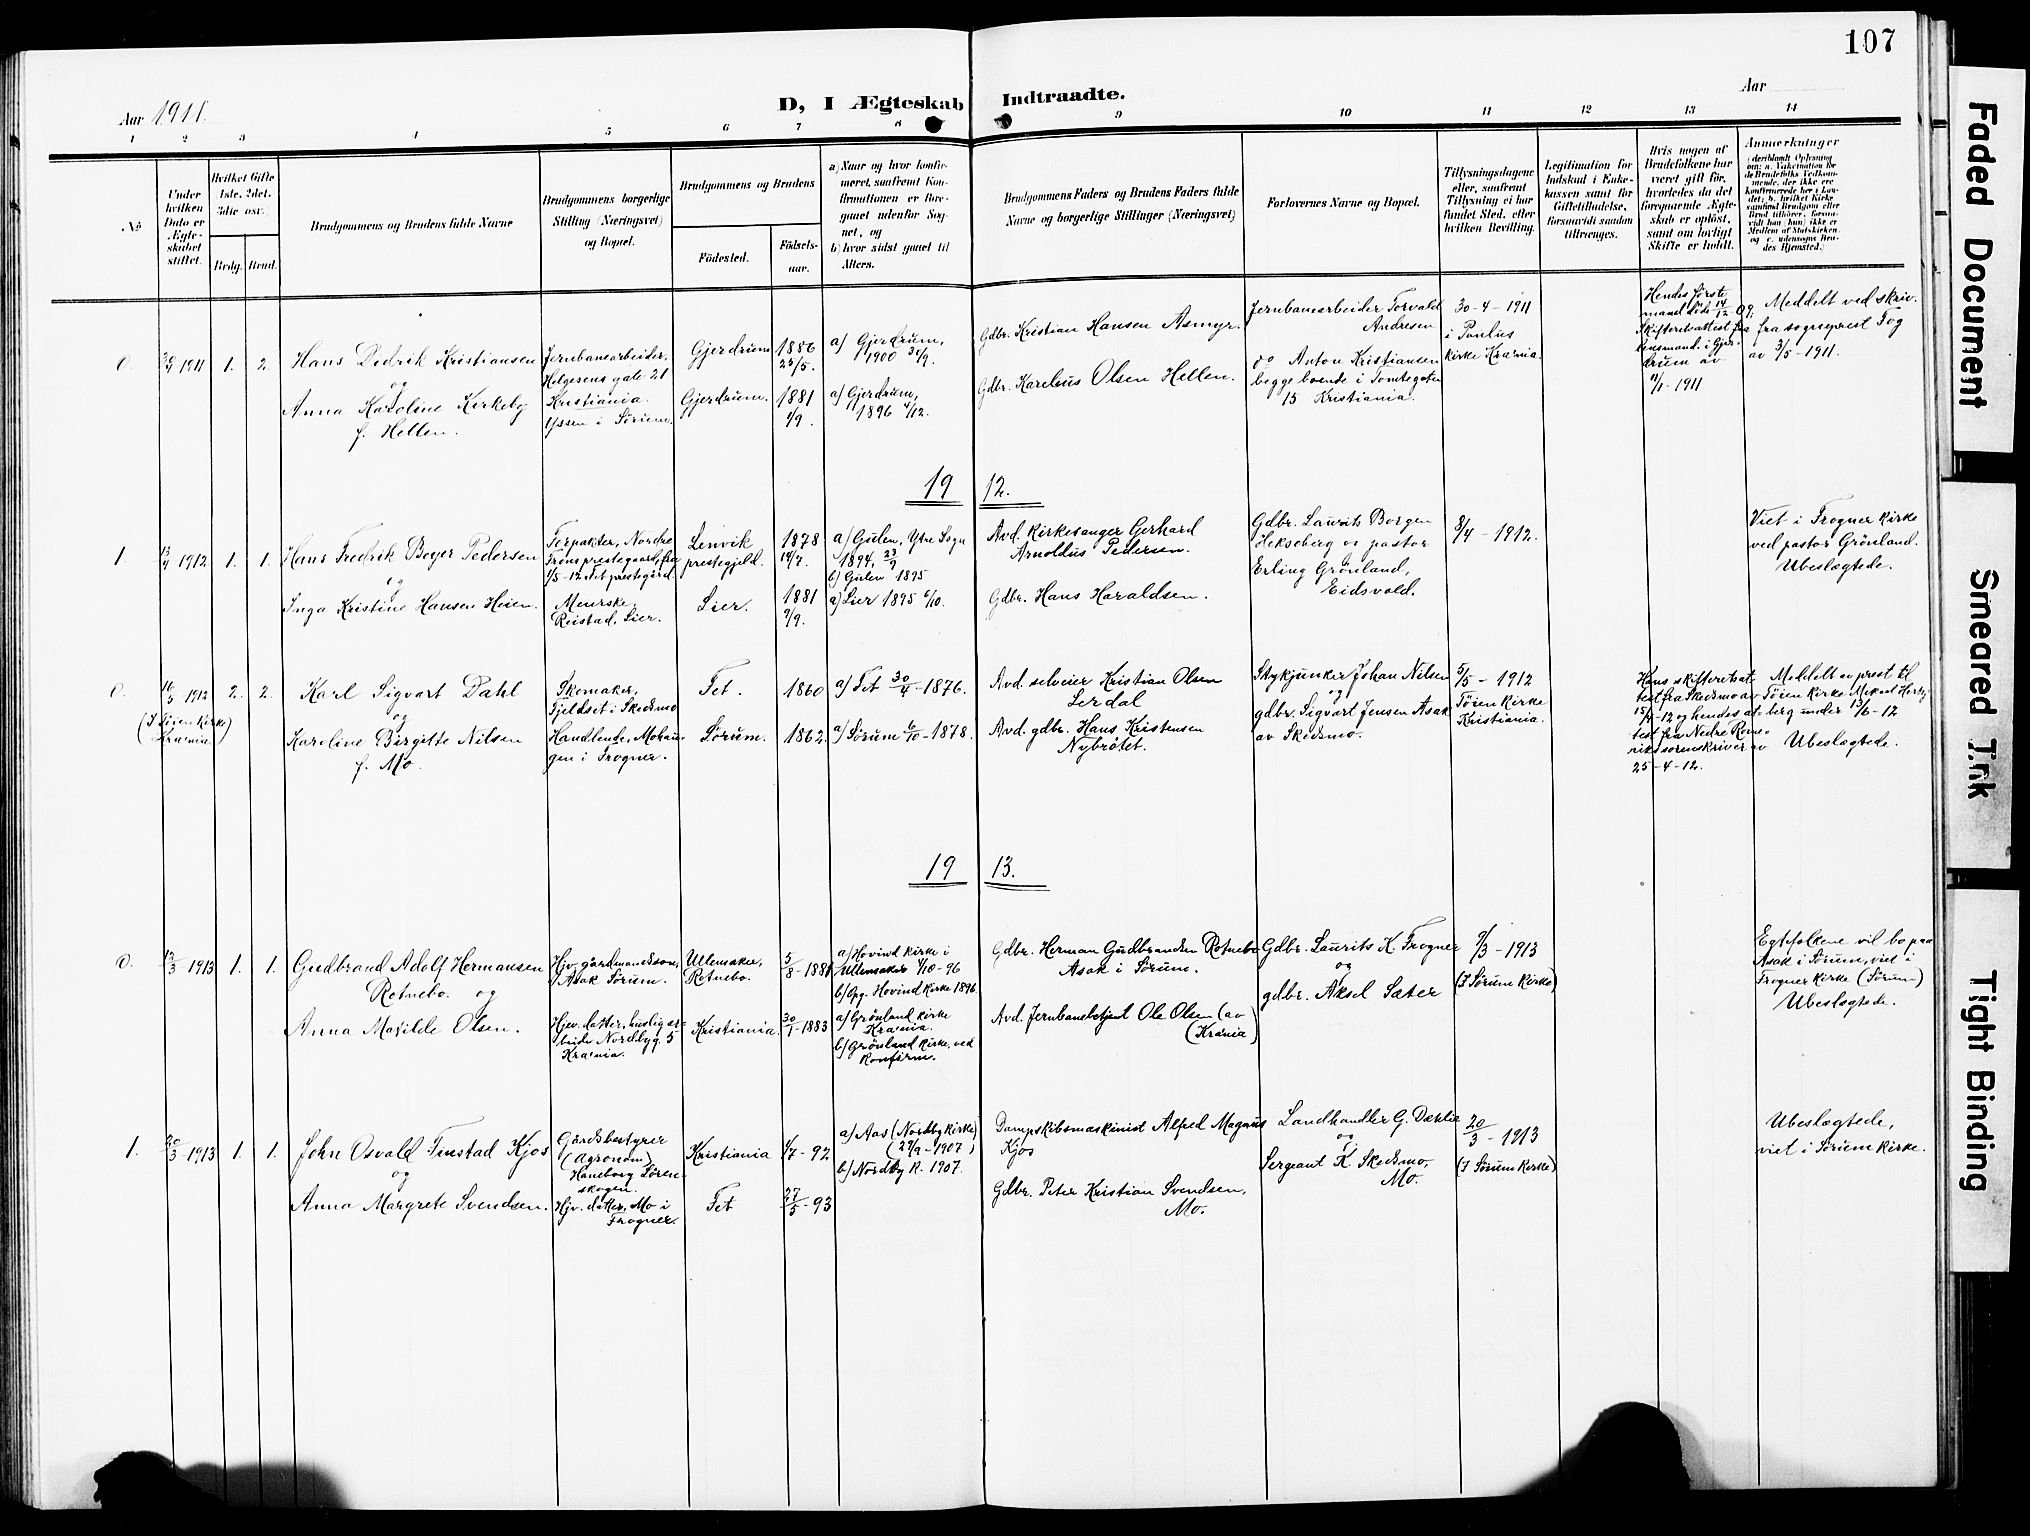 107
Aar 1911.
D, I Ægteskab Indtraadte.
Aar
1 2 3 4 5 6 7 8 9 10 11 12 13 14
No
Under hvilken Dato er Ægte-skabet stiftet.
Hvilket Gifte 1ste, 2det, 3die osv.)
Brdg. Brud.
Brudgommens og Brudens fulde Navne
Brudgommens borgerlige Stilling (Næringsvei) og Bopæl.
Brudgommens og Brudens
Födested.
Födsels-aar.
a) Naar og hvor konfir-meret, saafremt Kon-firmationen er fore-gaaet udenfor Sog-net, og
b) hvor sidst gaaet til Alters.
Brudgommens Faders og Brudens Faders fulde Navne og borgerlige Stillinger (Næringsvei)
Forlovernes Navne og Bopæl.
Tillysningsdagene eller, saafremt Tillysning ei har fundet Sted, efter hvilken Bevilling.
Legitimation for Indskud i Enke-kassen samt for Giftetilladelse, forsaavidt saadan tiltrænges.
Hvis nogen af Brudefolkene har været gift för, hvorledes da det foregaaende Ægte-skab er oplöst, samt om lovligt Skifte er holdt.
Anmærkninger
0. 30/4 1911 1. 2.
Hans Didrik Kristiansen
og
Anna Karoline Kirkeby
f. Hellen.
Jernbanearbeider,
Helgesens gate 21
Kristiania.
Yssen i Sørum.
Gjerdrum
Gjerdrum.
1886
25/5.
1881
1/9.
a) Gjerdrum,
1900 30/9.
a) Gjerdrum,
1896 4/12.
Gdbr. Kristian Hansen Asmyr.
Gdbr. Karelius Olsen Hellen.
Jernbanearbeider Torvald
Andresen
og Anton Kristiansen
begge boende i Tomtegaten
15 Kristiania.
30-4-1911
i Paulus
kirke Kra:nia.
Hendes første
mand døde 14/12 09;
Skifteretsattest fra
lensmand. i Gjer-
drum av
4/1-1911
Meddelt ved skriv.
fra sogneprest Fog
av 3/5-1911.
19 12.
1. 13/4 1912 1. 1.
Hans Fredrik Boyer Pedersen
og
Inga Kristine Hansen Heien.
Forpakter, Nordre
Frons prestegaard, fra
1/5-12 Fet prestegård.
Meierske,
Reistad, Lier.
Lenvik
prestegjeld.
Lier.
1878
14/7.
1881
9/9.
a) Gulen, Ytre Sogn
1894, 23/9
b) Gulen 1895
a) Lier 1895 6/10.
Avd. Kirkesanger Gerhard
Arnoldus Pedersen.
Gdbr. Hans Haraldsen.
Gdbr. Laurits Borgen
Hekseberg og pastor
Erling Grønland,
Eidsvold.
8/4-1912.
Viet i Frogner kirke
ved pastor Grönland.
Ubeslægtede.
0. 16/5 1912 2. 2.
(I Tøien Kirke)
Kra:nia.
Karl Sigvart Dahl
og
Karoline Birgitte Nilsen
f. Mo.
Skomaker,
Fjeldset i Skedsmo
Handlende, Mohau-
gen i Frogner.
Fet.
Sørum.
1860
1862.
a) Fet 30/4-1876.
a) Sørum 6/10-1878.
Avd. selveier Kristian Olsen
Lerdal
Avd. gdbr. Hans Kristensen
Nybrøtet.
Stykjunker Johan Nilsen
og
gdbr. Sigvart Jensen Asak
av Skedsmo.
5/5-1912
Tøien Kirke
Kristiania.
Hans skifteretsat-
test fra Skedsmo av
15/4-12 og hendes at-
test fra Nedre Rome-
rikes sorenskriver av
25-4-12.
Meddelt av prest til
Tøien Kirke Mikael Hertz-
berg under 13/6-12
Ubeslægtede.
19 13.
0. 12/3 1913 1. 1.
Gudbrand Adolf Hermansen
Rotnebo. og
Anna Matilde Olsen.
Hjv. gårdmandssøn,
Asak Sørum.
Hjev. datter, huslig ar-
beide Nordbyg. 5
Kra:nia.
Ullensaker,
Rotnebo.
Kristiania.
5/8-1881
30/1-1883
a) Hovind kirke i
Ullensaker 4/10-96
b) Opg. Hovind kirke 1896
a) Grönland kirke
Kra:nia.
b) Grönland kirke, ved
konfirm.
Gdbr. Herman Gudbrandsen Rotnebo
Asak i Sørum.
Avd. Jernbanebetjent Ole Olsen (av
(Kra:nia)
Gdbr. Laurits K. Frogner
og
gdbr. Aksel Sæter
9/3-1913
(I Sørum Kirke)
Egtefolkene vil bo paa
Asak i Sørum, viet i
Frogner kirke (Sørum)
Ubeslægtede.
1. 20/3-1913 1. 1.
John Osvald Finstad Kjos
og
Anna Margrete Svendsen.
Gårdsbestyrer
(Agronom)
Haneborg Lören-
skogen.
Hjv. datter, Mo i
Frogner.
Kristiania
Fet
4/7-92
27/5-93
a) Aas (Nordby kirke)
(29/9-1907)
b) Nordby K. 1907.
Dampskibsmaskinist Alfred Magnus
Kjos
Gdbr. Peter Kristian Svendsen,
Mo.
Landhandler G. Dæhlie
og
Sergeant K. Skedsmo,
Mo.
20/3-1913
(I Sørum kirke)
Ubeslægtede,
viet i Sørum kirke.
Faded Document
Smeared Ink
Tight Binding